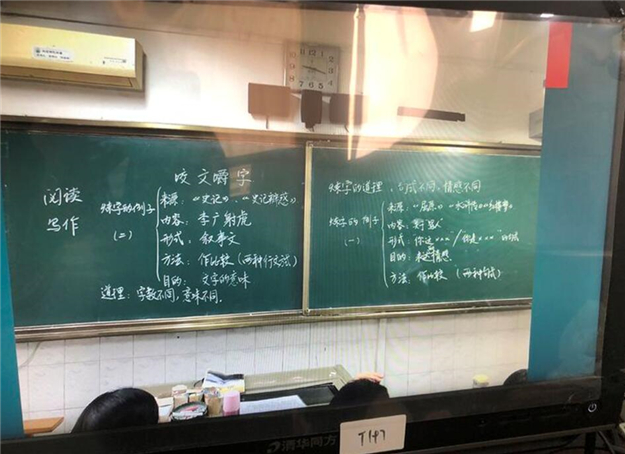 咬文嚼字
阅读
写作
炼字的例子
(二)
来源:《史记》、《史记辨惑》
内容:李广射虎
形式:叙事文
方法:作比较(两种行文法)
目的:文字的意味
道理:字数不同,意味不同。
炼字的道理:句式不同,情感不同
炼字的例子
(一)
来源:《屈原》
内容:
形式:你这×××/你是×××的句式
目的:情感
方法:作比较(两种句式)
清华同方
T147